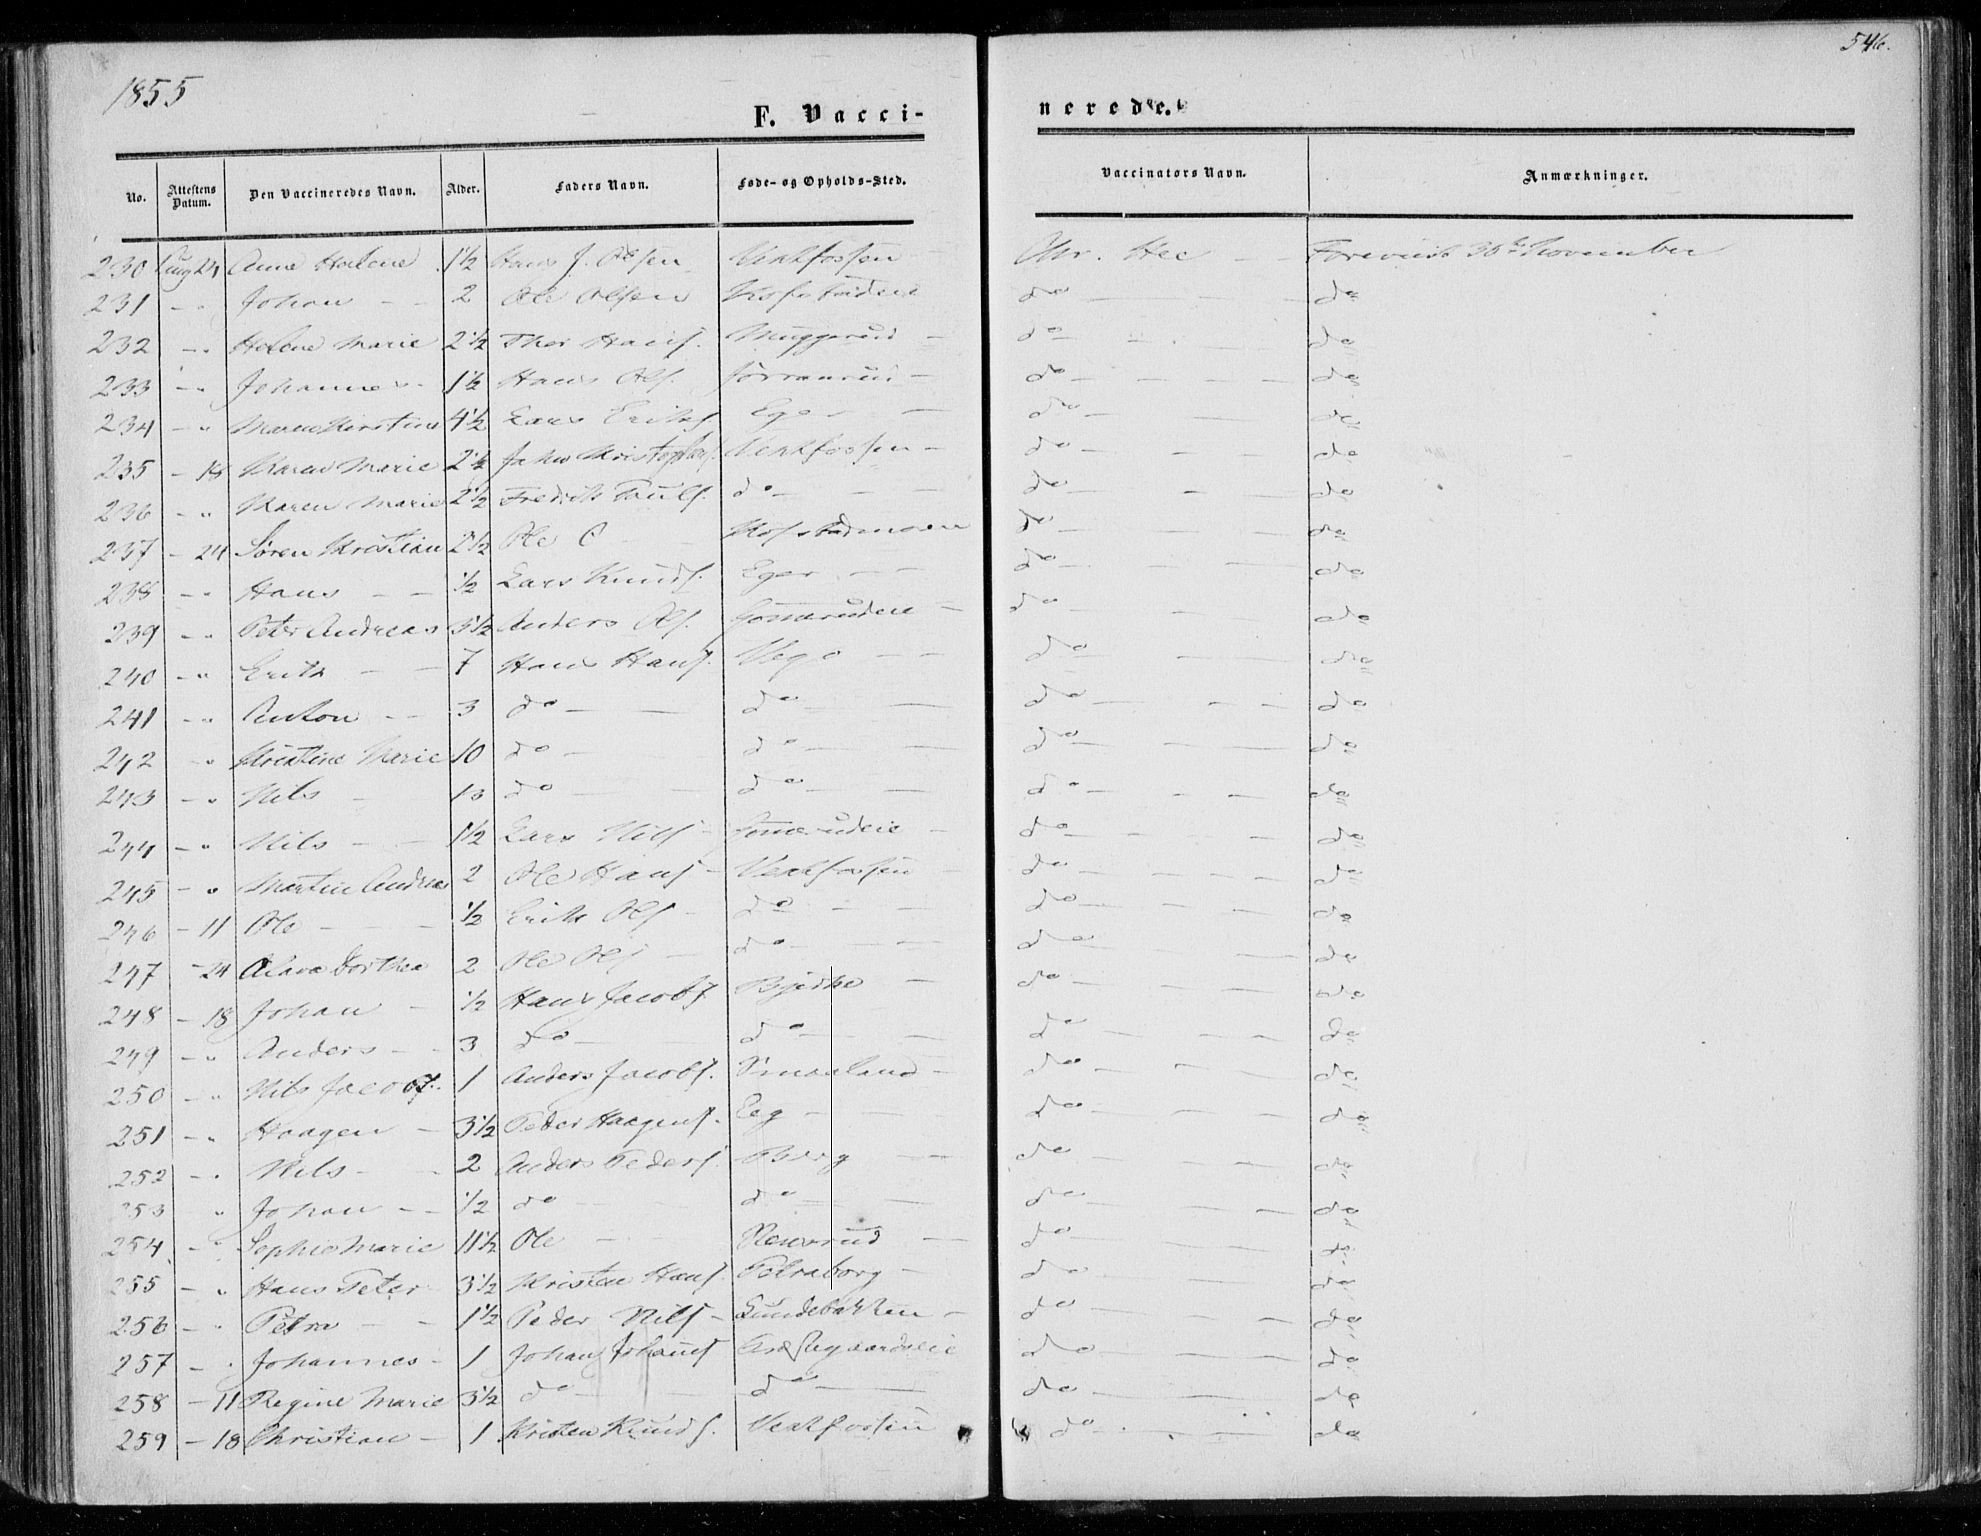 1855
546.
F. Vacci-
nerede.
No. Attestens Datum. Den Vaccineredes Navn. Alder. Faders Navn. Føde- og Opholds-Sted. Vaccinators Navn. Anmærkninger.
230 Aug 24 Anne Helene 1½ Hans J. Olsen Vestfossen Chr. Hee Foreviist 30te November
231 - " Johan 2 Ole Olsen do do
232 - " Helene Marie 2½ Thor Hans. Muggerud do do
233 - " Johannes 1½ Hans Ols. do do
234 - " Maren Kirstine 4½ Lars Eriks. Eger do do
235 - 18 Karen Marie 2½ John Kristophers. Vestfossen do do
236 - " Karen Marie 2½ Fredrik Pauls. do do do
237 - 24 Søren Kristian 2½ Ole O Hofstadmoen do do
238 - " Hans ½ Lars Knuds. Eger do do
239 - " Peter Andreas 3½ Anders Ols. Somerudeie do do
240 - " Erik 7 Hans Hans. do do
241 - " Anton 3 do do do do
242 " Kristine Marie 10 do do do do
243 - " Nils 13 do do do do
244 - " Nils 1½ Lars Nils. Somerudeie do do
245 - " Martin Andreas 2 Ole Hans. Vestfossen do do
246 - 11 Ole ½ Erik Ols. do do do
247 - 24 Clara Dorthea 2 Ole Ols. do do do
248 - 18 Johan ½ Hans Jacobs. Bjerke do do
249 - " Anders 3 do do do do
250 - " Nils Jacobs. 1 Anders Jacobs. Smaaland do do
251 - " Haagen 3½ Peder Haagens. Eeg do do
252 - " Nils 2 Anders Peders. Berg do do
253 " Johan ½ do do do do
254 - " Sophie Marie 11½ Ole do do
255 - " Hans Peter 3½ Kristen Hans. Petraborg do do
256 - " Petra 1½ Peder Nils. Lundebakken do do
257 - " Johannes 1 Johan Johans. do do
258 - 11 Regine Marie 3½ do do do do
259 - 18 Christian 1 Kristen Knuds. Vestfossen do do